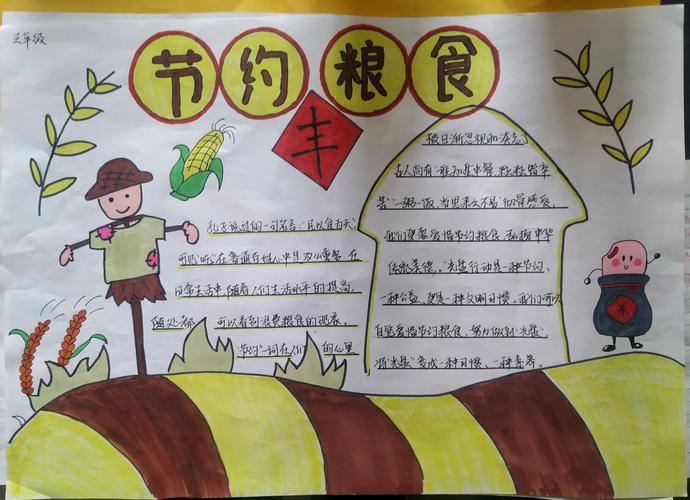 三年级
节约粮食
丰
孔子说过的一句名言:“民以食为天”,
可见“吃”在普通百姓心中是多么重要,在
日常生活中,随着人们生活水平的提高,
随处都可以看到浪费粮食的现象,
“节约”一词在人们的心里
被日渐忽视和淡忘了
古人尚有“谁知盘中餐,粒粒皆辛
苦”“一粥一饭,当思来之不易”的骨感爱。
我们更要爱惜节约粮食,弘扬中华
传统美德。“光盘”行动是一种节约、
一种公益,更是一种文明习惯。我们可以
自觉爱惜节约粮食,努力做到“光盘”
将“光盘”变成一种习惯、一种素养。
米